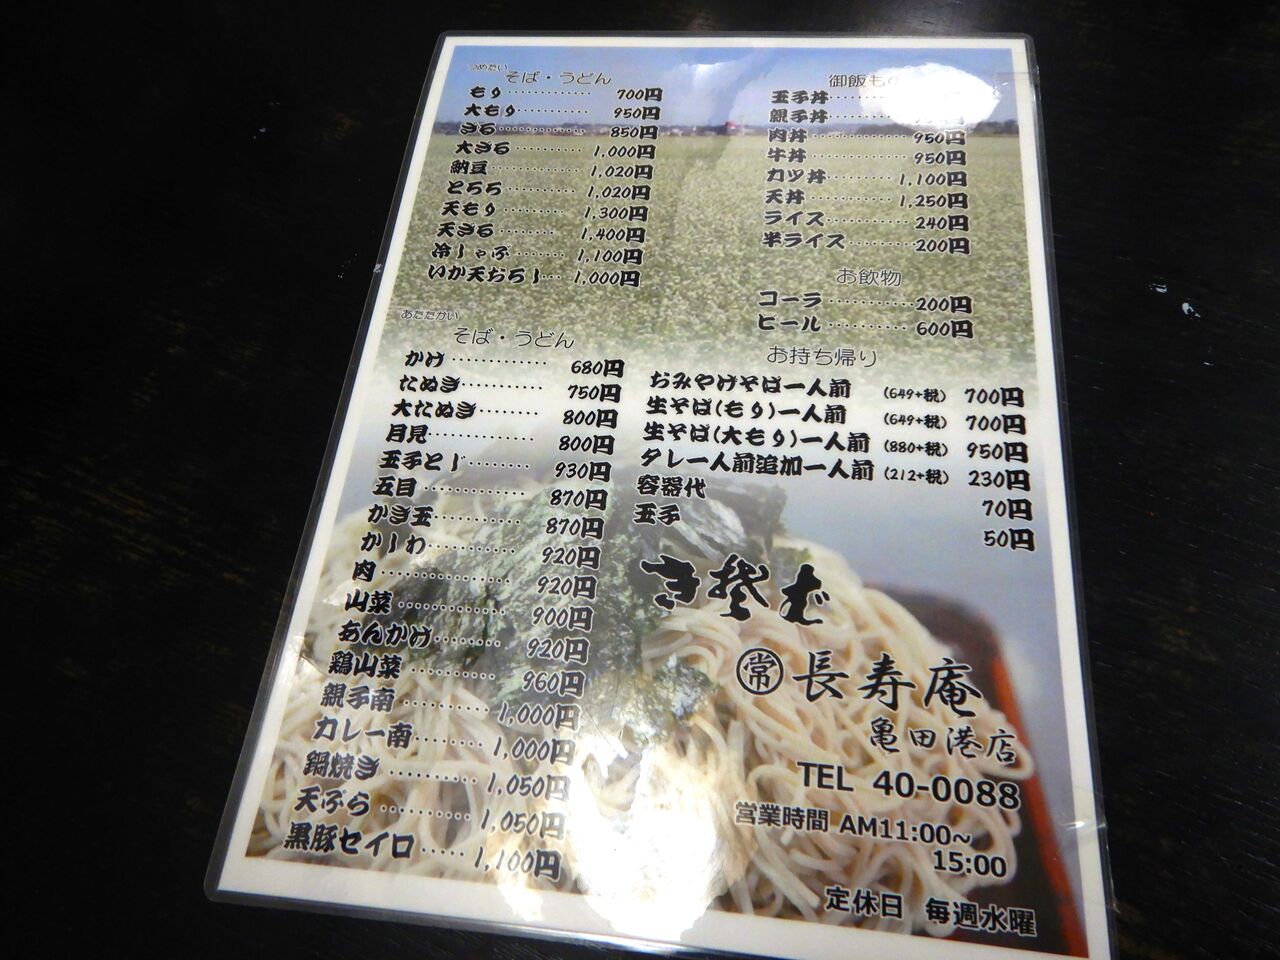 つめたい
そば・うどん
もり 700円
大もり 950円
ざる 850円
大ざる 1,000円
納豆 1,020円
とろろ 1,020円
天もり 1,300円
天ざる 1,400円
冷しゃぶ 1,100円
いか天おろし 1,000円
あたたかい
そば・うどん
かけ 680円
たぬき 750円
大たぬき 800円
月見 800円
玉子とじ 930円
五目 870円
かき玉 870円
かしわ 920円
肉 920円
山菜 900円
あんかけ 920円
鶏山菜 960円
親子南 1,000円
カレー南 1,000円
鍋焼き 1,050円
天ぷら 1,050円
黒豚セイロ 1,100円
御飯もの
玉子丼
親子丼
肉丼 950円
牛丼 950円
カツ丼 1,100円
天丼 1,250円
ライス 240円
半ライス 200円
お飲物
コーラ 200円
ビール 600円
お持ち帰り
おみやげそば一人前 (649+税) 700円
生そば(もり)一人前 (649+税) 700円
生そば(大もり)一人前 (880+税) 950円
タレ一人前追加一人前 (212+税) 230円
容器代 70円
玉子 50円
㊑長寿庵
亀田港店
TEL 40-0088
営業時間 AM11:00~
15:00
定休日 毎週水曜